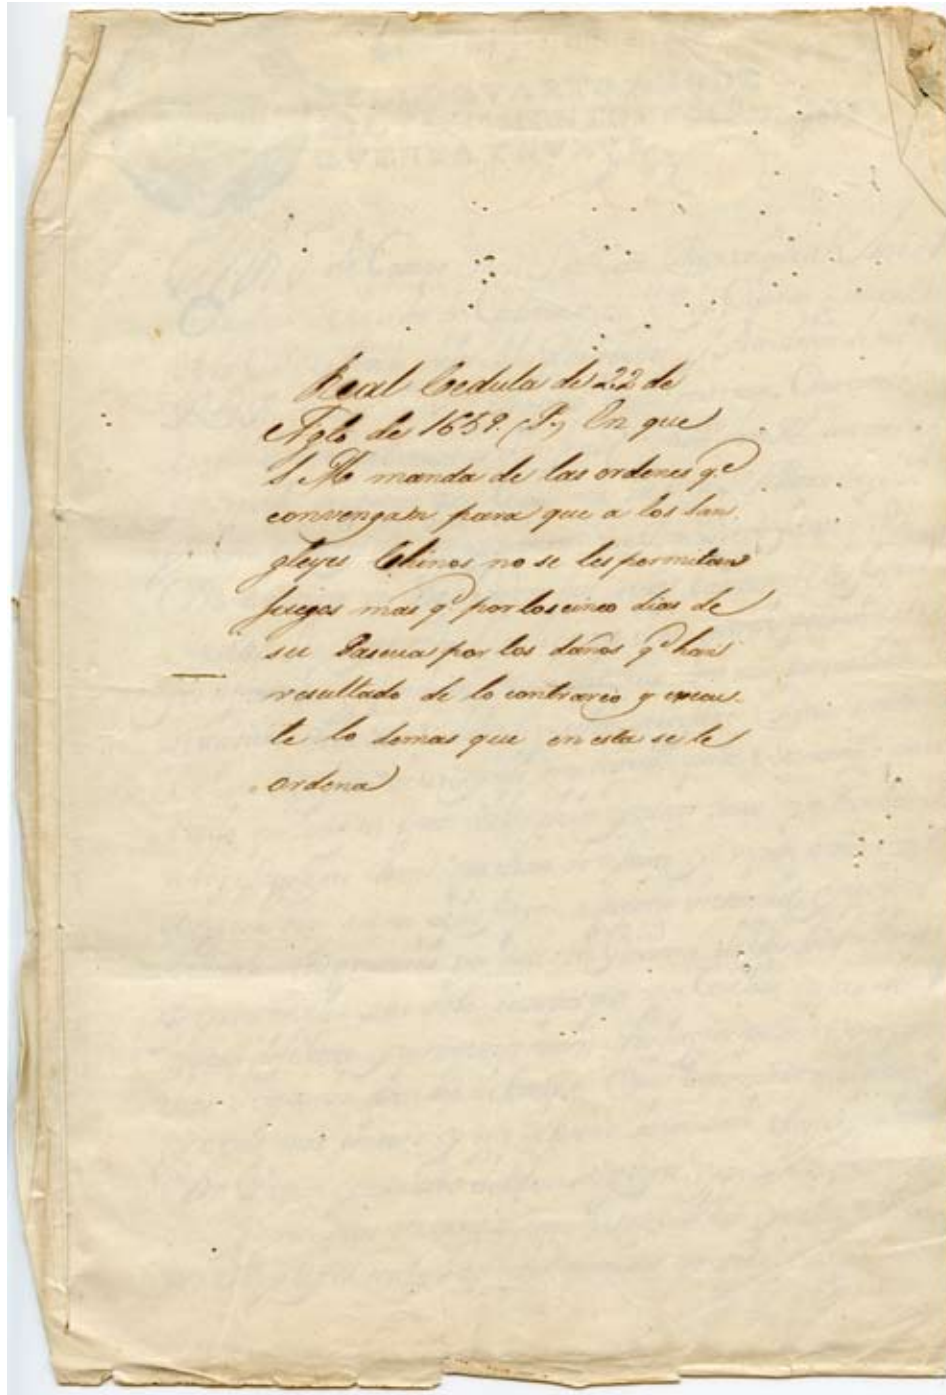 Real Cedula de 22 de
Agto de 1659. (P.) En que
S. M. manda de las ordenes q.e
convengan para que a los San
gleyes Chinos no se les permitan
Juegos mas q.e por los cinco dias de
su Pascua por los daños q.e han
resultado de lo contrario y execu-
te lo demas que en esta se le
ordena